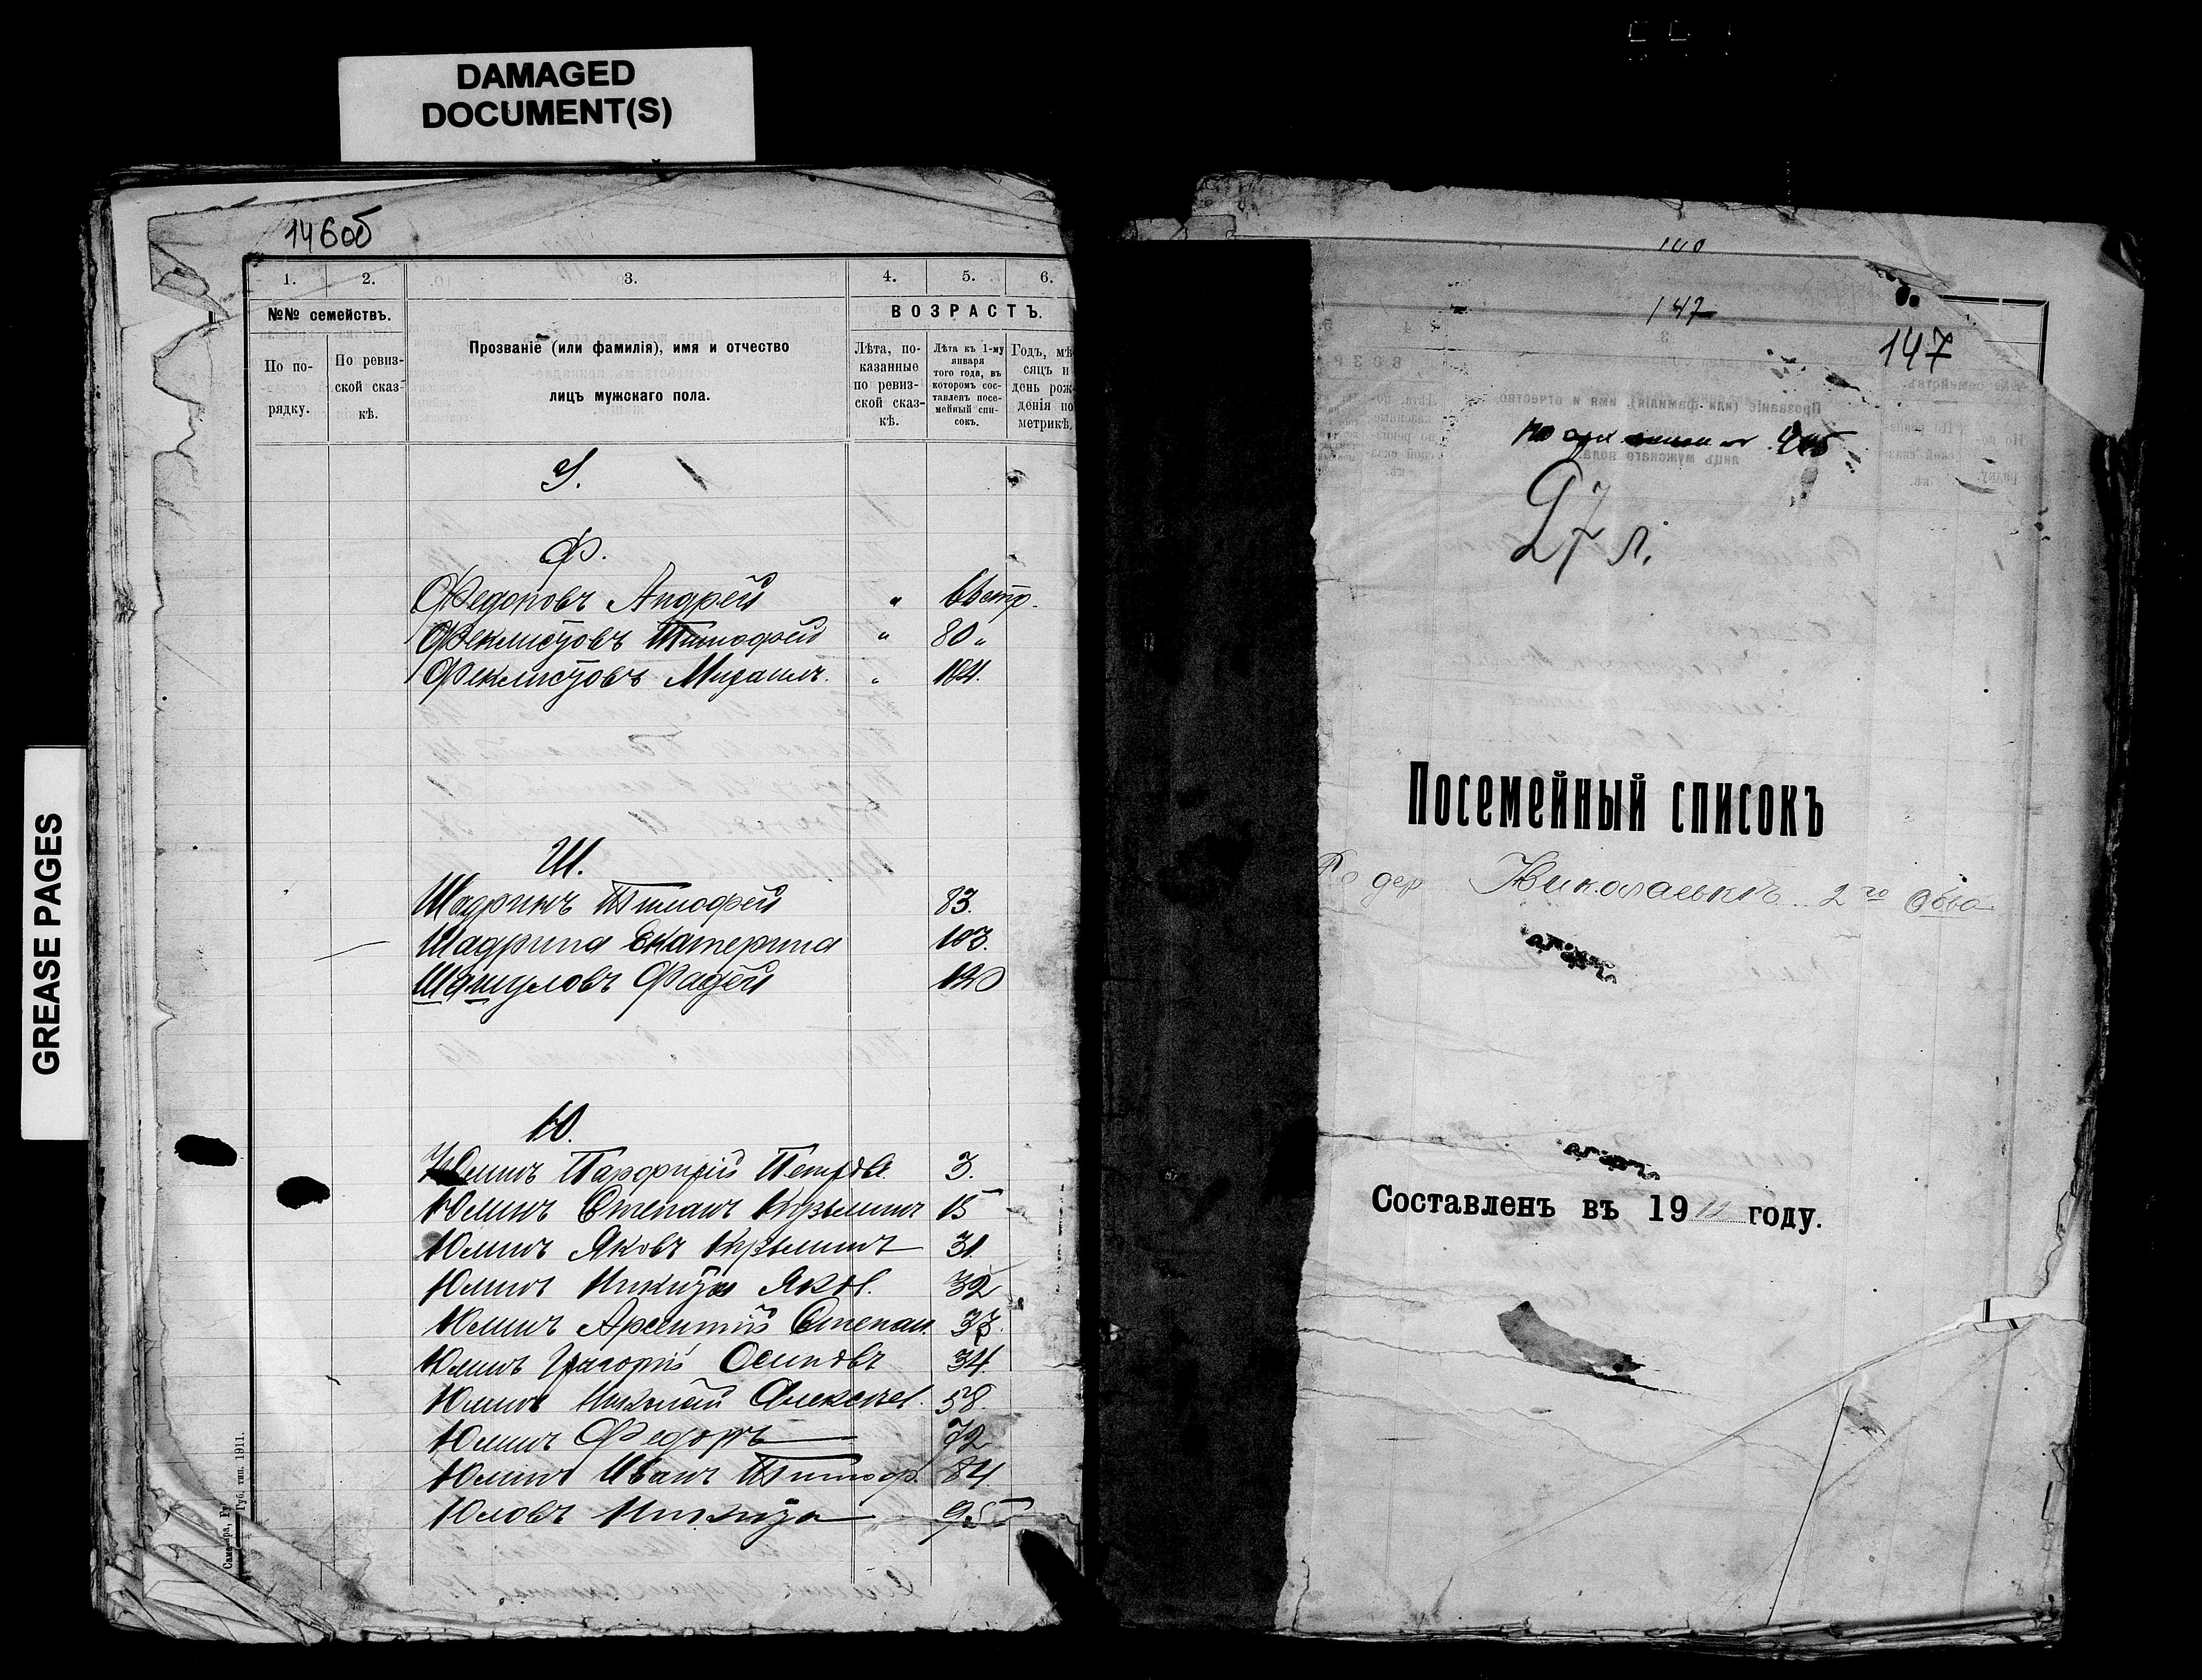 DAMAGED
DOCUMENT(S)
GREASE PAGES
146об
1. 2. 3. 4. 5. 6.
№№ семействъ.
По по-
рядку.
По ревиз-
ской сказ-
кѣ.
Прозваніе (или фамилія), имя и отчество
лицъ мужскаго пола.
ВОЗРАСТЪ.
Лѣта, по-
казанные
по ревиз-
ской сказ-
кѣ.
Лѣта къ 1-му
января
того года, въ
которомъ сос-
тавленъ посе-
мейный спи-
сокъ.
Годъ, мѣ-
сяцъ и
день рож-
денія по
метрикѣ.
У.
Ф.
Федоровъ Андрей " 66 стр.
Феклистовъ Тимофей " 80 "
Феклистовъ Михаилъ. " 184.
Ш.
Шадринъ Тимофей 83.
Шадрина Екатерина 103.
Шашуловъ Фадей 120
Ю.
Юлинъ Парфирій Петровъ. 3.
Юлинъ Степанъ Кузьминъ 15
Юлинъ Яковъ Кузьминъ 31
Юлинъ Никита Яков. 32
Юлинъ Арсентій Степан. 33.
Юлинъ Григорій Осиповъ 34.
Юлинъ Николай Алексѣев. 58.
Юлинъ Федоръ 72
Юлинъ Иванъ Тимоф. 84.
Юловъ Никита 95
Губ. тип. 1911.
147
147
27 л.
Посемейный списокъ
дер. Николаевкѣ 2го Об-ва
Составленъ въ 1912 году.